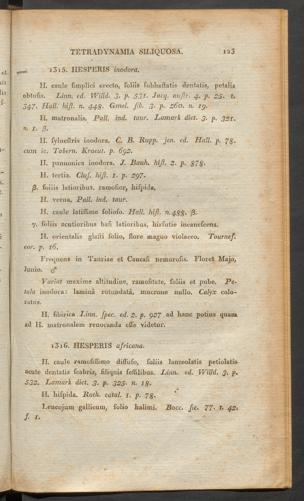 TETRADYNAMIA SILIQUOSA. 123
1315. HESPERIS inodora.
H. caule ſimplici erecto, foliis ſubhaſtatis dentatis, petalis
obtuſis. Linn. ed. Willd. 3. p. 531. Jacq. auſtr. 4. p. 25. t.
347. Hall. hiſt. n. 448. Gmel. ſib. 3. p. 260. n. 19.
H. matronalis. Pall. ind. taur. Lamark dict. 3. p. 321.
n. 1. β.
H. ſylveſtris inodora. C. B. Rupp. jen. ed. Hall. p. 78.
cum ic. Tabern. Kraeut. p. 692.
H. pannonica inodora. J. Bauh. hiſt. 2. p. 878.
H. tertia. Cluſ. hiſt. 1. p. 297.
β. foliis latioribus, ramoſior, hiſpida,
H. verna, Pall. ind. taur.
H. caule latiſſime folioſo. Hall. hiſt. n. 488. β.
γ. foliis acutioribus baſi latioribus, hirſutie incaneſcens.
H. orientalis glaſti folio, flore magno violaceo. Tournef.
cor. p. 16.
Frequens in Tauriae et Caucaſi nemoroſis. Floret Majo,
Junio. ♂
Variat maxime altitudine, ramoſitate, foliis et pube. Pe-
tala inodora: laminâ rotundatâ, mucrone nullo. Calyx colo-
ratus.
H. ſibirica Linn. ſpec. ed. 2. p. 927 ad hanc potius quam
ad H. matronalem revocanda eſſe videtur.
1316. HESPERIS africana.
H. caule ramoſiſſimo diffuſo, foliis lanceolatis petiolatis
acute dentatis ſcabris, ſiliquis ſeſſilibus. Linn. ed. Willd. 3. p.
532. Lamark dict. 3. p. 323. n. 18.
H. hiſpida. Roth. catal. 1. p. 78.
Leucojum gallicum, folio halimi. Bocc. ſic. 77. t. 42.
f. 1.